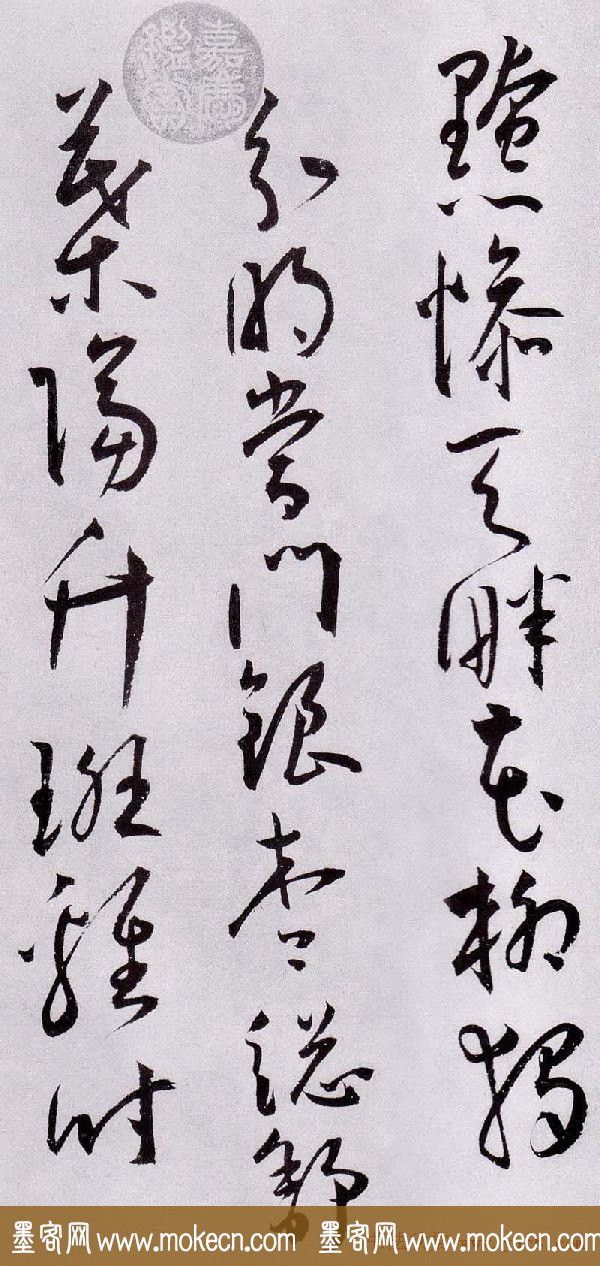 黯慘天畔花柳獨
分明當門銀杏總舒
葉隔斑雞時
墨客网 www.mokecn.com 墨客网 www.mokecn.com